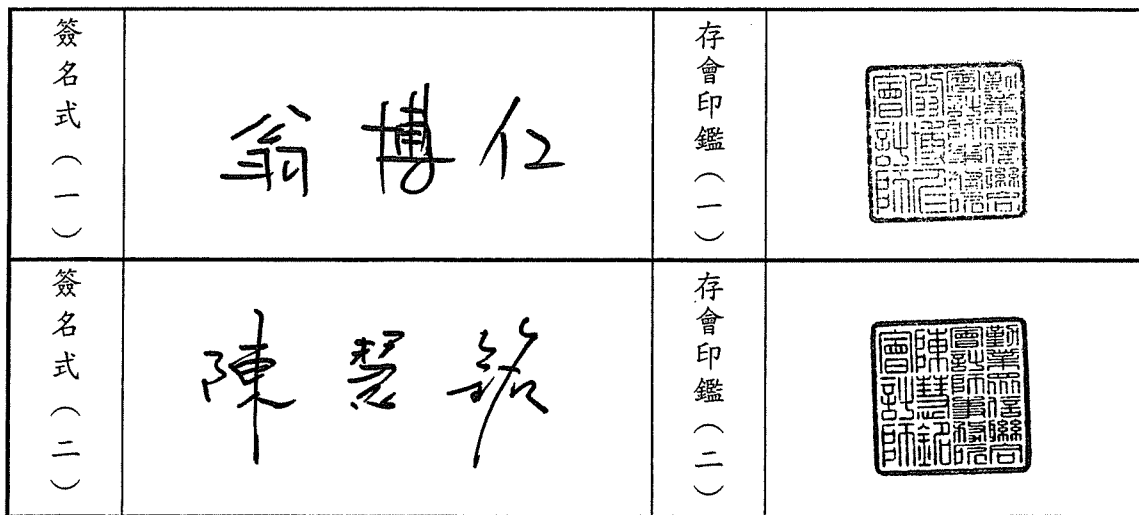 簽名式（一）
翁博仁
存會印鑑（一）
勤業眾信聯合
會計師事務所
翁博仁
會計師
簽名式（二）
陳慧銘
存會印鑑（二）
勤業眾信聯合
會計師事務所
陳慧銘
會計師